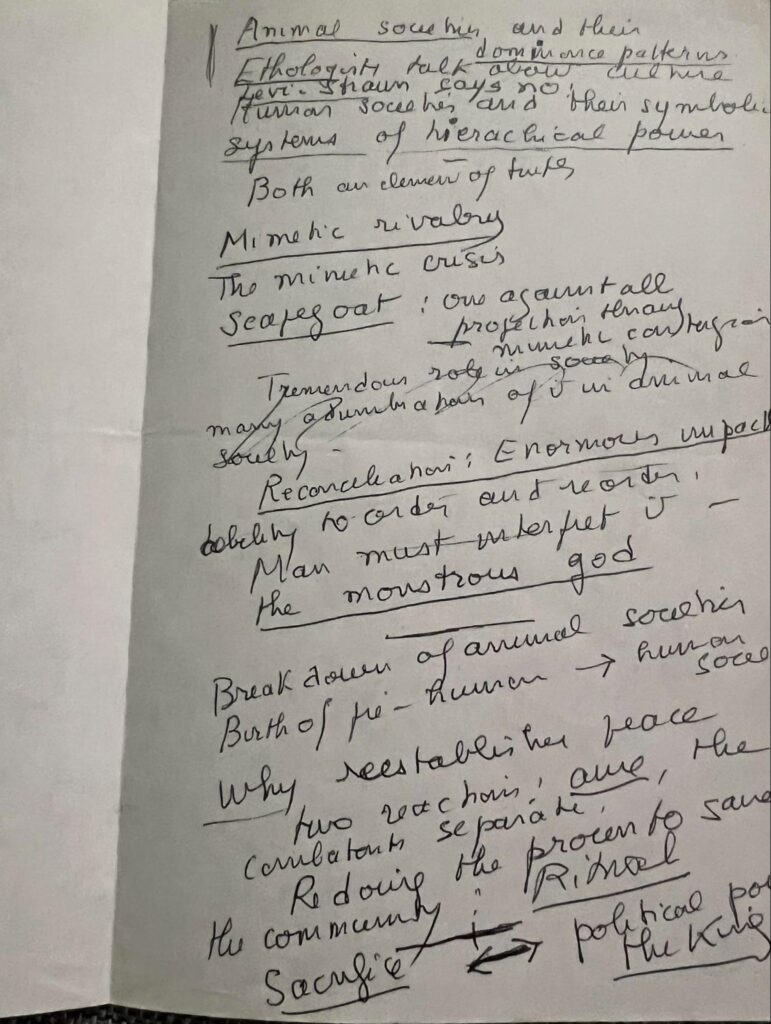 Animal societies and their
dominance patterns
Ethologists talk about culture
Levi-Straun says no!
Human societies and their symbolic
systems of hierachical power
Both an element of truth
Mimetic rivalry
The mimetic crisis
Scapegoat : one against all
projection through
mimetic contagion
Tremendous role in society
many adumbrations of it in animal
society -
Reconciliation : Enormous impact
ability to order and reorder.
Man must interpret it -
the monstrous god
Breakdown of animal societies
Birth of pre-human → human
socie
Why reestablishes peace
two reactions, awe, the
combatants separate.
Redoing the process to save
the community : Ritual
Sacrifice ↔ political po
the King